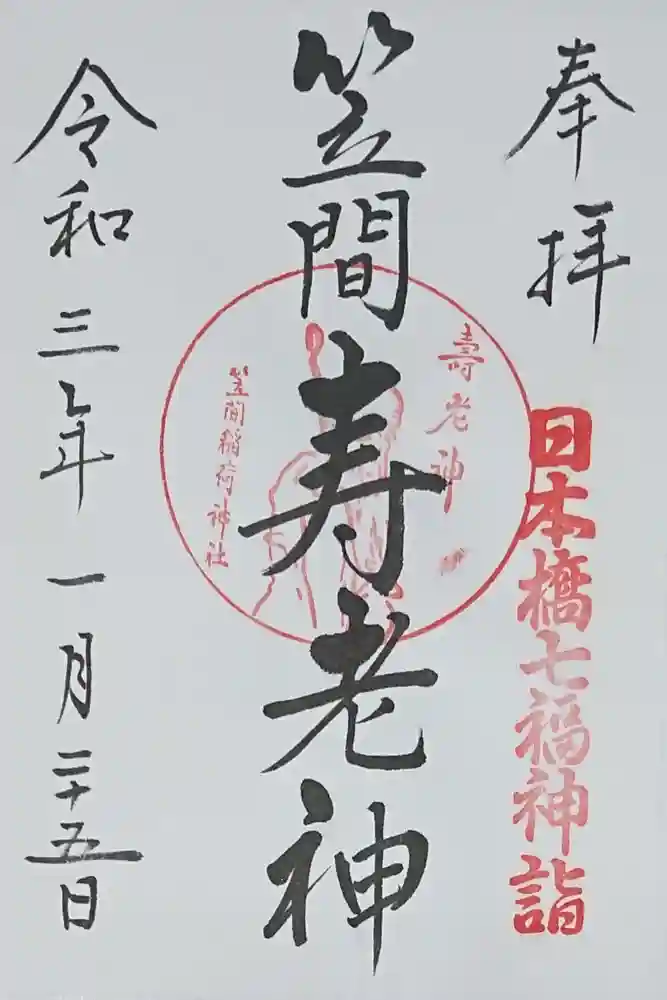 奉拝
日本橋七福神詣
笠間寿老神
壽老神
笠間稲荷神社
令和三年一月二十五日